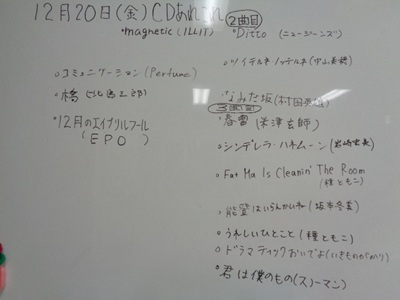 12月20日(金)CDあれこれ
・magnetic(ILLIT)
○コミュニケーション(Perfume)
○橋(北島三郎)
○12月のエイプリルフール
(EPO)
2曲目
○Ditto(ニュージーンズ)
○ツイテルネノッテルネ(中山美穂)
○なみだ坂(村田英雄)
3曲目
○春雷(米津玄師)
○シンデレラ・ハネムーン(岩崎宏美)
○Fat Ma Is Cleanin' The Room
(種ともこ)
○能登はいらんかいね(坂本冬美)
○うれしいひとこと(種ともこ)
○ドラマティックおいでよ(いきものがかり)
○君は僕のもの(スノーマン)